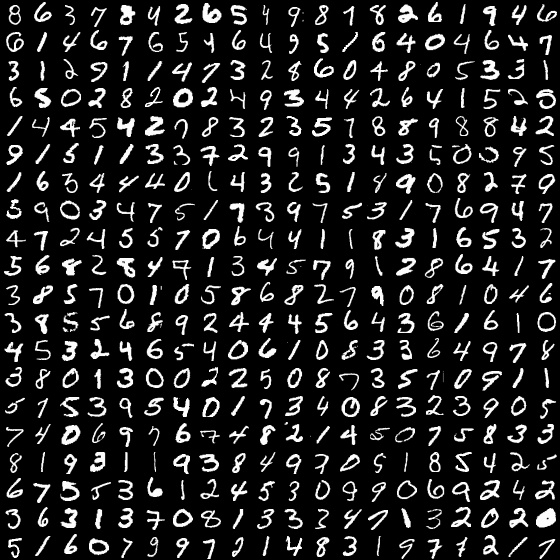 8 6 3 7 8 4 2 6 5 4 9 8 1 8 2 6 1 9 4 6
6 1 4 6 7 6 5 4 6 4 9 5 1 6 4 0 4 6 4 7
3 1 2 9 1 1 4 7 3 2 8 6 0 4 8 0 5 3 3 1
6 5 0 2 8 2 0 2 4 9 3 4 4 2 6 4 1 5 2 8
1 4 4 5 4 2 7 8 3 2 3 5 7 8 8 9 8 8 4 2
9 1 5 1 1 3 3 7 2 9 9 1 3 4 3 5 0 0 9 5
1 6 3 4 4 4 0 1 4 3 2 5 1 9 9 0 8 2 7 9
3 9 0 3 4 7 5 1 7 3 9 7 5 3 1 7 6 9 4 7
4 7 2 4 5 5 7 0 6 4 4 1 1 8 3 1 6 5 3 2
5 6 8 2 8 4 7 1 3 4 5 7 9 1 2 8 6 4 1 7
3 8 5 7 0 1 0 5 8 6 8 2 7 9 0 8 1 0 4 6
3 8 5 5 6 8 9 2 4 4 4 5 6 4 3 6 1 6 1 0
4 5 3 2 4 6 5 4 0 6 1 0 8 3 3 6 4 9 7 8
3 8 0 1 3 0 0 2 2 5 0 8 7 3 5 7 0 9 1 1
5 7 5 3 9 5 4 0 1 7 3 4 0 8 3 2 3 9 0 5
7 4 0 6 9 7 6 7 4 8 2 1 4 5 0 7 5 8 3 3
8 1 9 3 1 1 9 3 8 4 9 7 0 5 1 8 5 4 2 5
6 7 5 5 3 6 1 2 4 5 3 0 9 9 0 6 9 2 4 2
3 6 3 1 3 7 0 8 1 3 3 3 4 7 1 3 2 0 2
5 1 6 0 7 9 9 7 2 1 4 8 3 1 9 7 7 2 1 7